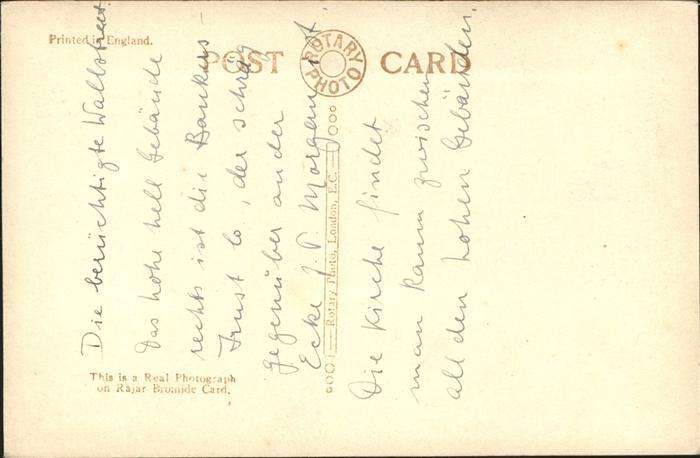 Printed in England.
POST CARD
ROTARY PHOTO
Rotary Photo, London, E.C.
This is a Real Photograph
on Rajar Bromide Card.
Die berüchtigte Wallstreet
Das hohe hell Gebäude
rechts ist die Bankers
Trust Co, der schräg
gegenüber an der
Ecke J. P. Morgan ist
Die Kirche findet
man kaum zwischen
all den hohen Gebäuden.